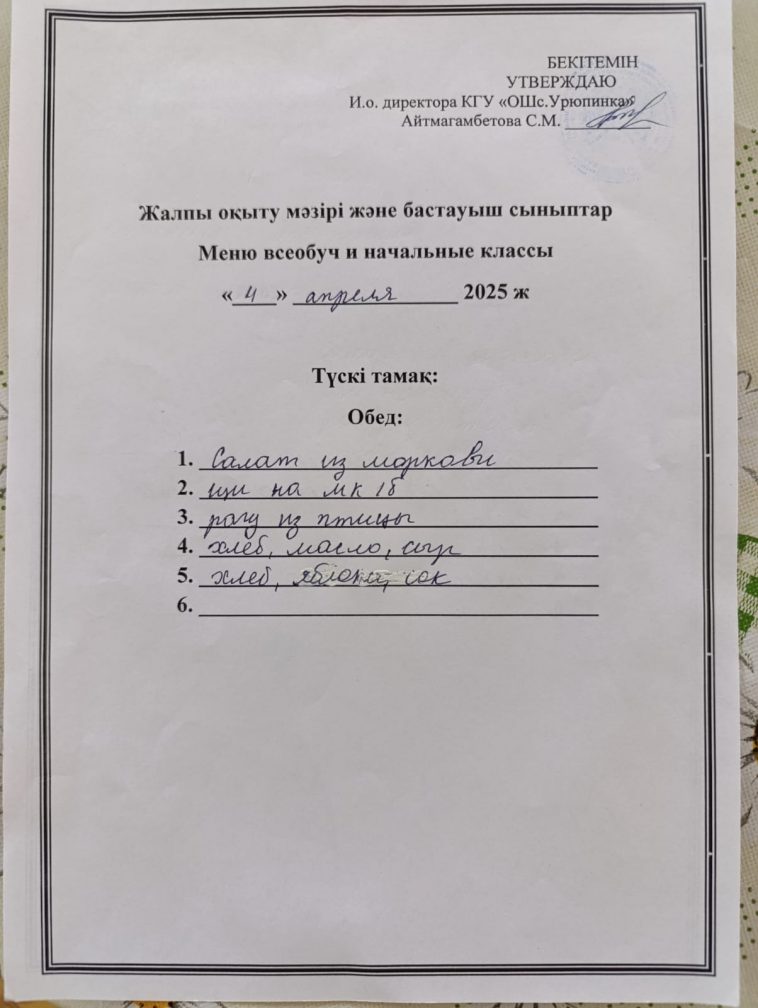 БЕКІТЕМІН
УТВЕРЖДАЮ
И.о. директора КГУ «ОШс.Урюпинка»
Айтмагамбетова С.М. __________
Жалпы оқыту мәзірі және бастауыш сыныптар
Меню всеобуч и начальные классы
«4» апреля 2025 ж
Түскі тамақ:
Обед:
1. Салат из моркови
2. щи на мк 1б
3. рагу из птицы
4. хлеб, масло, сыр
5. хлеб, яблоко, сок
6.